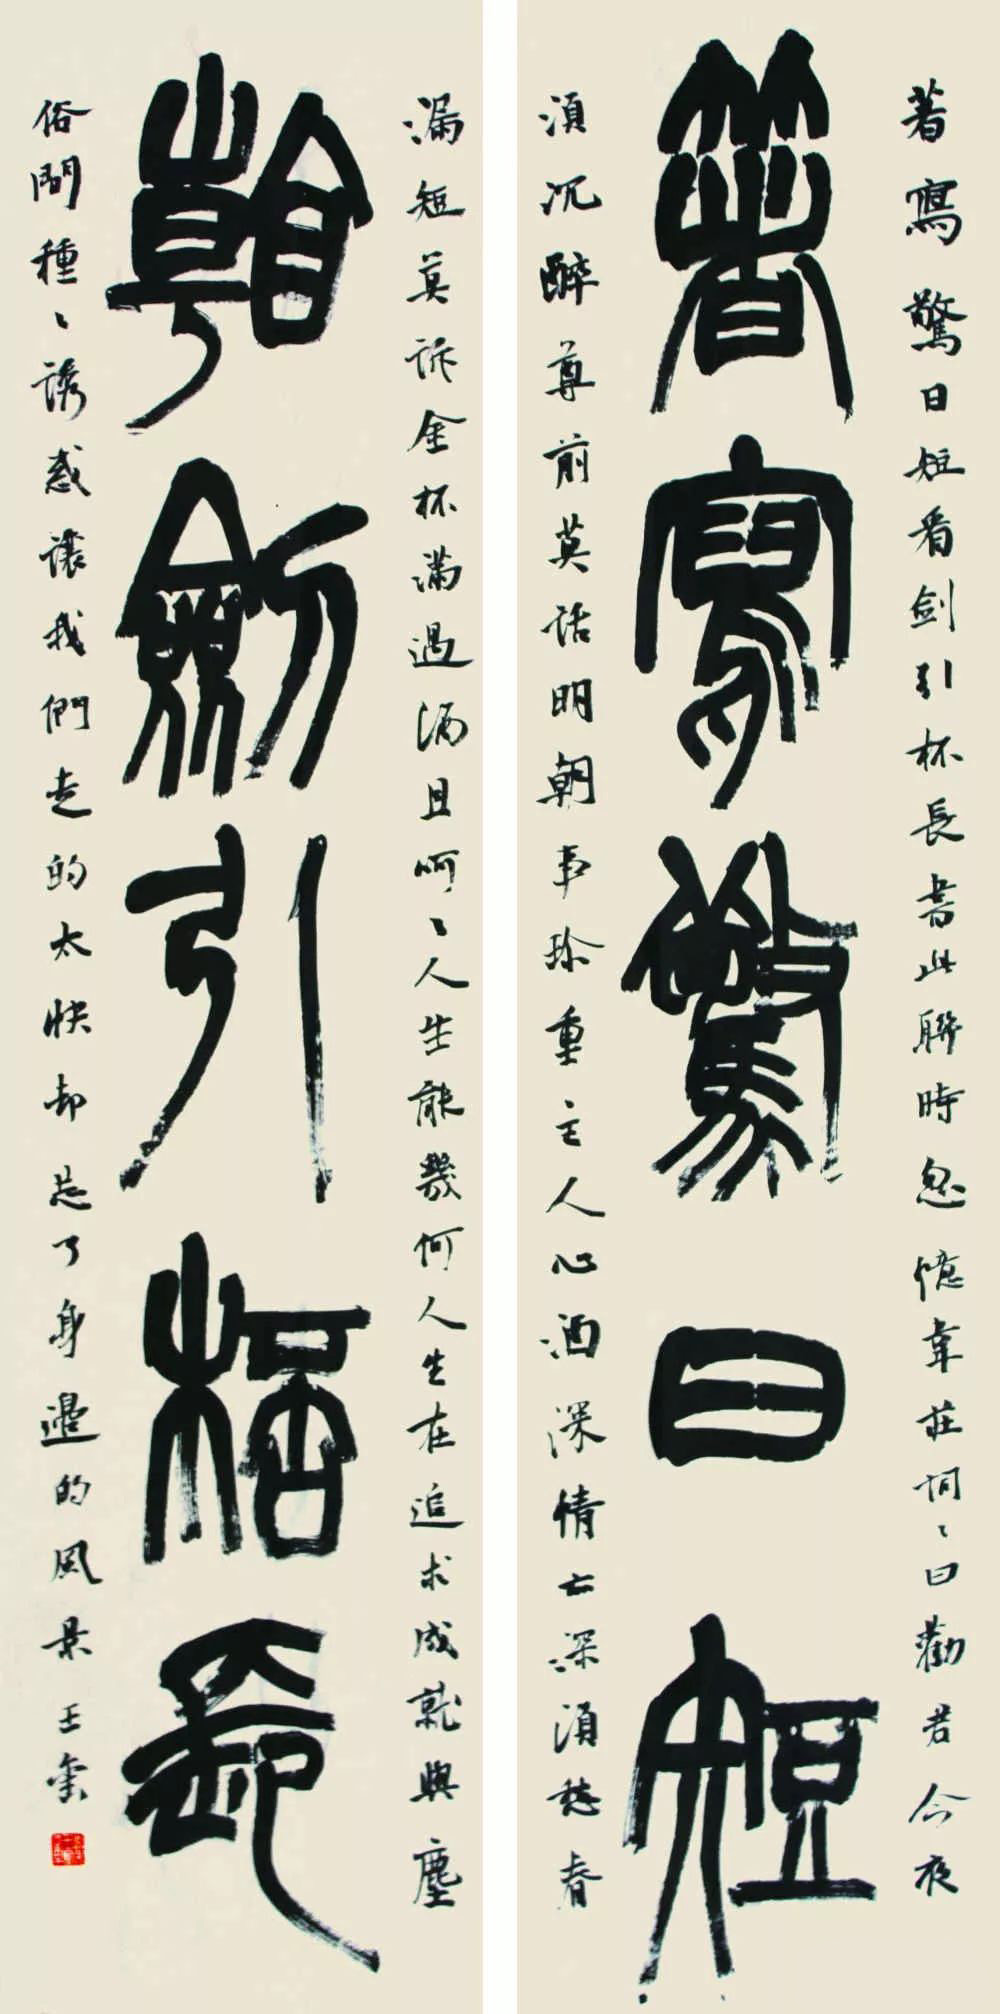 著寫驚日短看剑引杯長書此聯時忽憶韋莊詞々曰勸君今夜
著寫驚日短
須沉醉尊前莫話明朝事珍重主人心酒深情亦深須愁春
漏短莫訴金杯滿遇酒且呵々人生能幾何人生在追求成就與塵
看劍引桮長
俗間種々誘惑讓我們走的太快却忘了身邊的風景王